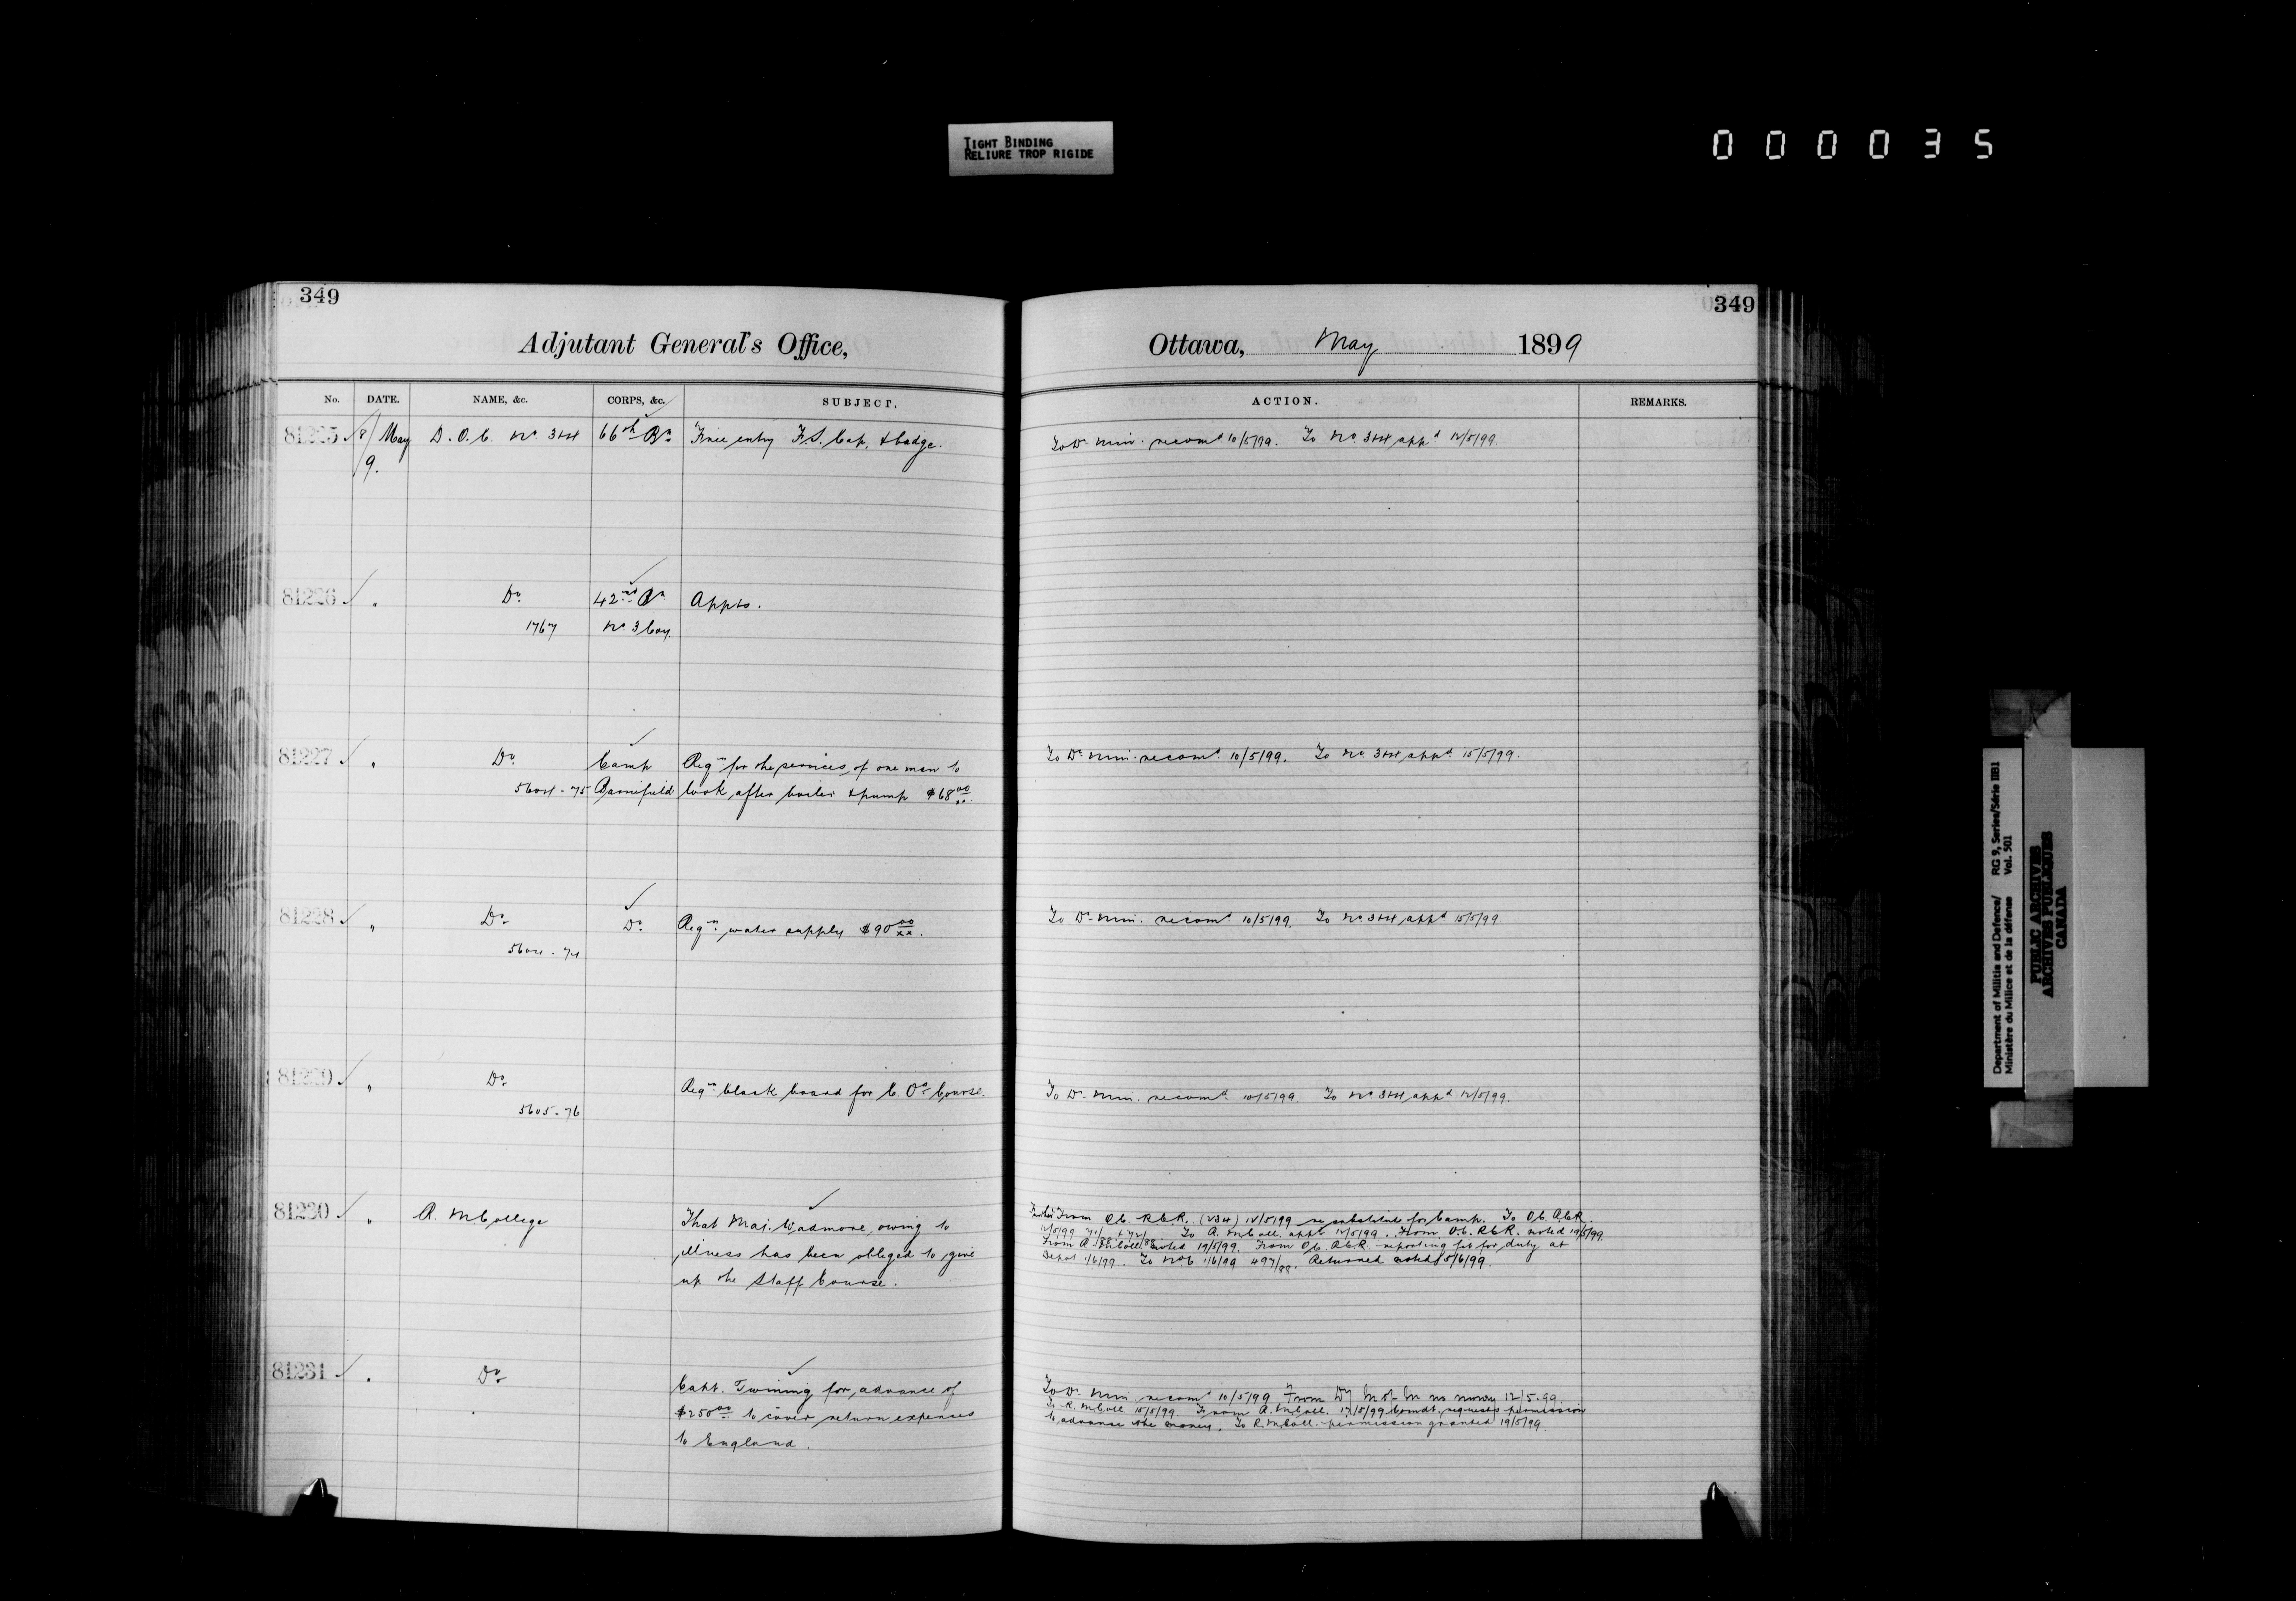 TIGHT BINDING
RELIURE TROP RIGIDE
000035
349
Adjutant General's Office,
No. DATE. NAME, &c. CORPS, &c. SUBJECT.
81225 8/May D.O.C. No. 3&4 66th Bn Free entry F.S. Cap. & badge.
9.
81226 " Do 42nd Bn Appts.
1767 No 3 Coy.
81227 " Do Camp Reqn for the services of one man to
5604-75 Barriefield look after boiler & pump $68 00/xx.
81228 " Do Do Reqn water supply $90 00/xx.
5604-74
81229 " Do Reqn black board for C.Os Course.
5605-76
81230 " R. M College That Maj. Wadmore, owing to
illness has been obliged to give
up the Staff Course.
81231 " Do Capt. Twining for advance of
$250 00 to cover return expenses
to England.
349
Ottawa, May 1899
ACTION. REMARKS.
To D. Min. recomd 10/5/99. To No. 3&4 appd 12/5/99.
To D. Min. recomd 10/5/99. To No. 3&4 appd 15/5/99.
To D. Min. recomd 10/5/99. To No. 3&4 appd 15/5/99
To D. Min. recomd 10/5/99 To No 3&4 appd 12/5/99.
Further From O.C. R.C.R. (234) 12/5/99 re substitute for Camp. To O.C. R.C.R.
12/5/99 71/88 & 72/88. To R. M Coll. appt 12/5/99. From O.C. R.C.R. noted 19/5/99.
From R. M Coll. noted 19/5/99. From O.C. R.C.R. reporting fit for duty at
Depot 1/6/99. To No 6 1/6/99 497/88. Returned noted 5/6/99.
To D. Min recomd 10/5/99 From Dy M of M no money 12/5.99
To R. M Coll 15/5/99. From R. M Coll. 17/5/99 Comdt. requests permission
to advance the money. To R. M Coll. permission granted 19/5/99.
Department of Militia and Defence/ RG 9, Series/Série IIB1
Ministère du Milice et de la défense Vol. 501
PUBLIC ARCHIVES
ARCHIVES PUBLIQUES
CANADA